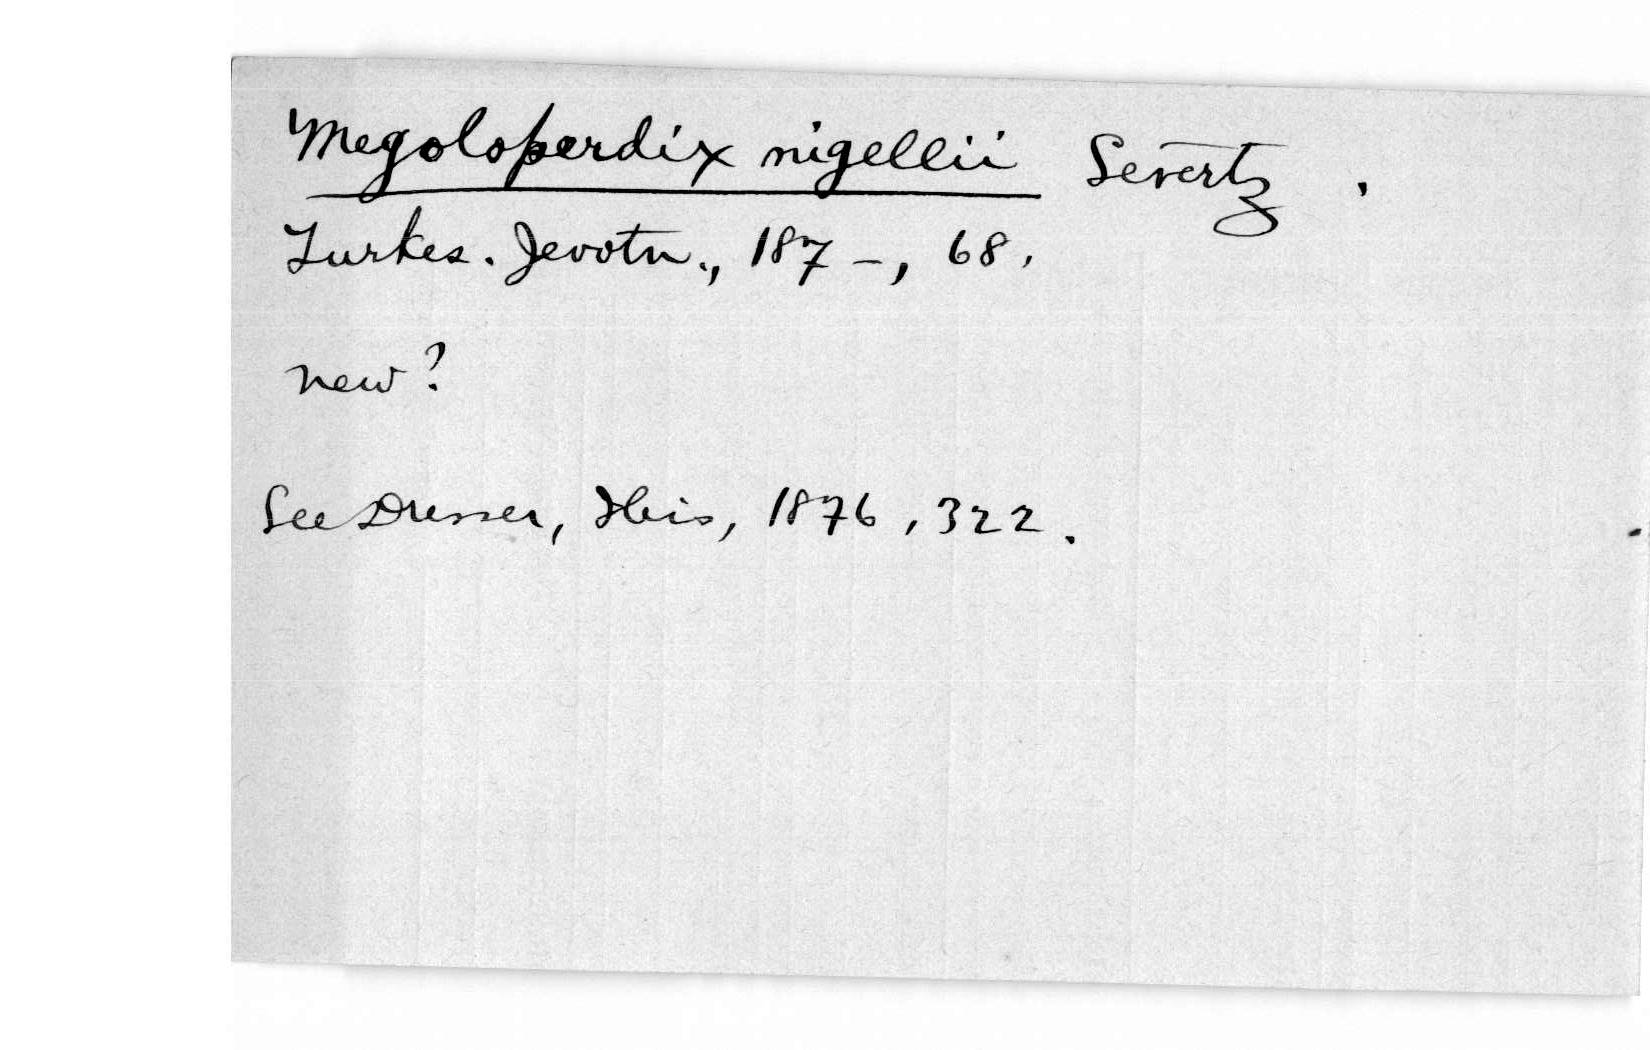 Megoloperdix nigellii Severtz.
Turkes. Jevotn., 187-, 68.
new?
See Dresser, Ibis, 1876, 322.